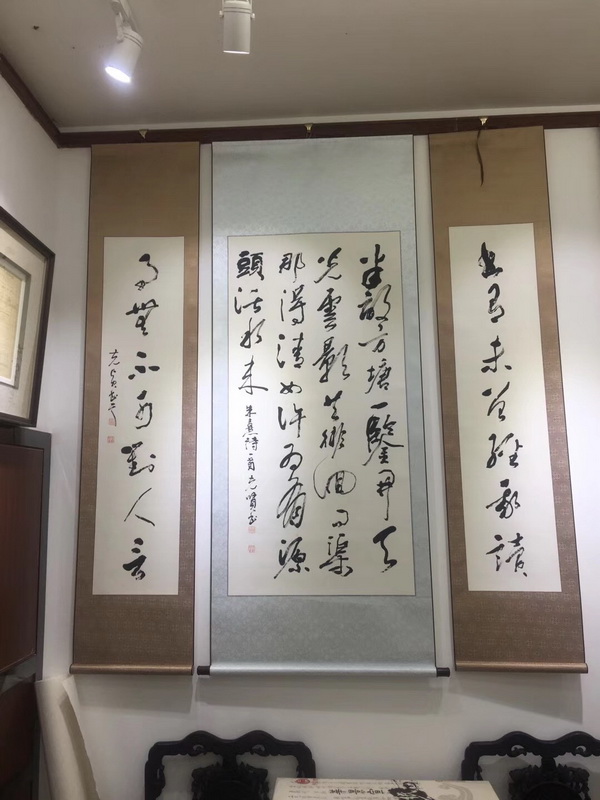 書有未曾經我讀
半畝方塘一鑒開天
光雲影共徘徊問渠
那得清如許為有源
頭活水來
朱熹詩一首
事無不可對人言